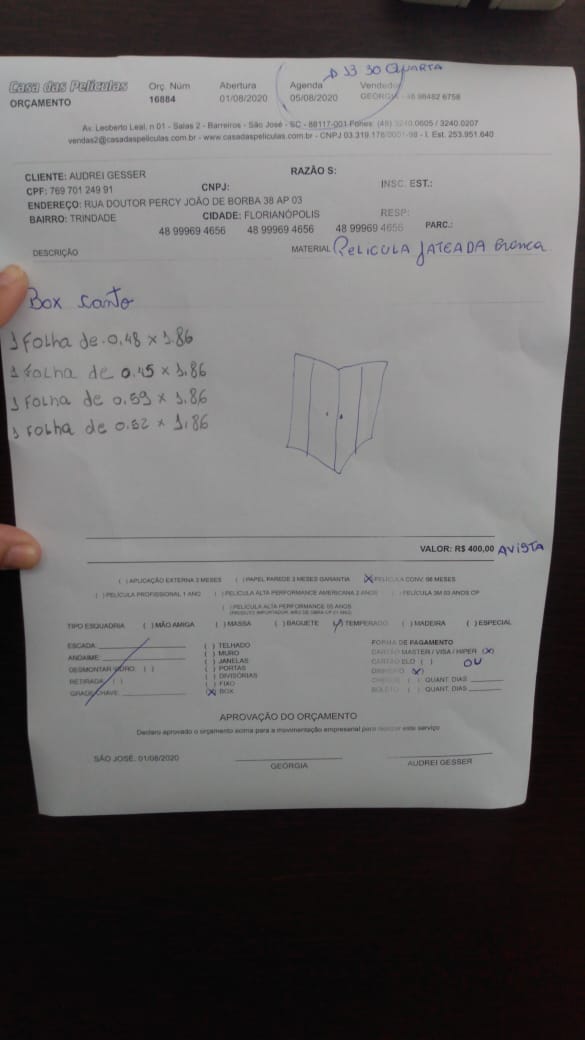 13 30 QUARTA
Casa das Películas Orç. Núm Abertura Agenda Vendedor
ORÇAMENTO 16884 01/08/2020 05/08/2020 GEORGIA - 48 98482 6758
Av. Leoberto Leal, n 01 - Salas 2 - Barreiros - São José - SC - 88117-001 Fones: (48) 3240.0605 / 3240.0207
vendas2@casadaspeliculas.com.br - www.casadaspeliculas.com.br - CNPJ 03.319.178/0001-98 - I. Est. 253.951.640
CLIENTE: AUDREI GESSER RAZÃO S:
CPF: 769 701 249 91 CNPJ: INSC. EST.:
ENDEREÇO: RUA DOUTOR PERCY JOÃO DE BORBA 38 AP 03
BAIRRO: TRINDADE CIDADE: FLORIANÓPOLIS RESP:
48 99969 4656 48 99969 4656 48 99969 4656 PARC.:
DESCRIÇÃO MATERIAL PELICULA JATEADA Branca
Box canto
1 Folha de 0,48 x 1.86
1 Folha de 0.45 x 1,86
1 Folha de 0,59 x 1.86
1 Folha de 0.52 x 1,86
VALOR: R$ 400,00 AVISTA
( ) APLICAÇÃO EXTERNA 3 MESES ( ) PAPEL PAREDE 3 MESES GARANTIA (X) PELÍCULA CONV. 06 MESES
( ) PELÍCULA PROFISSIONAL 1 ANO ( ) PELÍCULA ALTA PERFORMANCE AMERICANA 2 ANOS ( ) PELÍCULA 3M 03 ANOS CP
( ) PELÍCULA ALTA PERFORMANCE 05 ANOS
TIPO ESQUADRIA ( ) MÃO AMIGA ( ) MASSA ( ) BAGUETE (/) TEMPERADO ( ) MADEIRA ( ) ESPECIAL
ESCADA: ( ) TELHADO FORMA DE PAGAMENTO
ANDAIME: ( ) MURO CARTÃO MASTER / VISA / HIPER (X)
( ) JANELAS CARTÃO ELO ( ) OU
DESMONTAR VIDRO: ( ) ( ) PORTAS DINHEIRO (X)
RETIRADA: ( ) ( ) DIVISÓRIAS CHEQUE ( ) QUANT. DIAS
( ) FIXO BOLETO ( ) QUANT. DIAS
GRADE/CHAVE: (X) BOX
APROVAÇÃO DO ORÇAMENTO
Declaro aprovado o orçamento acima para a movimentação empresarial para realizar este serviço
SÃO JOSÉ: 01/08/2020
GEORGIA AUDREI GESSER